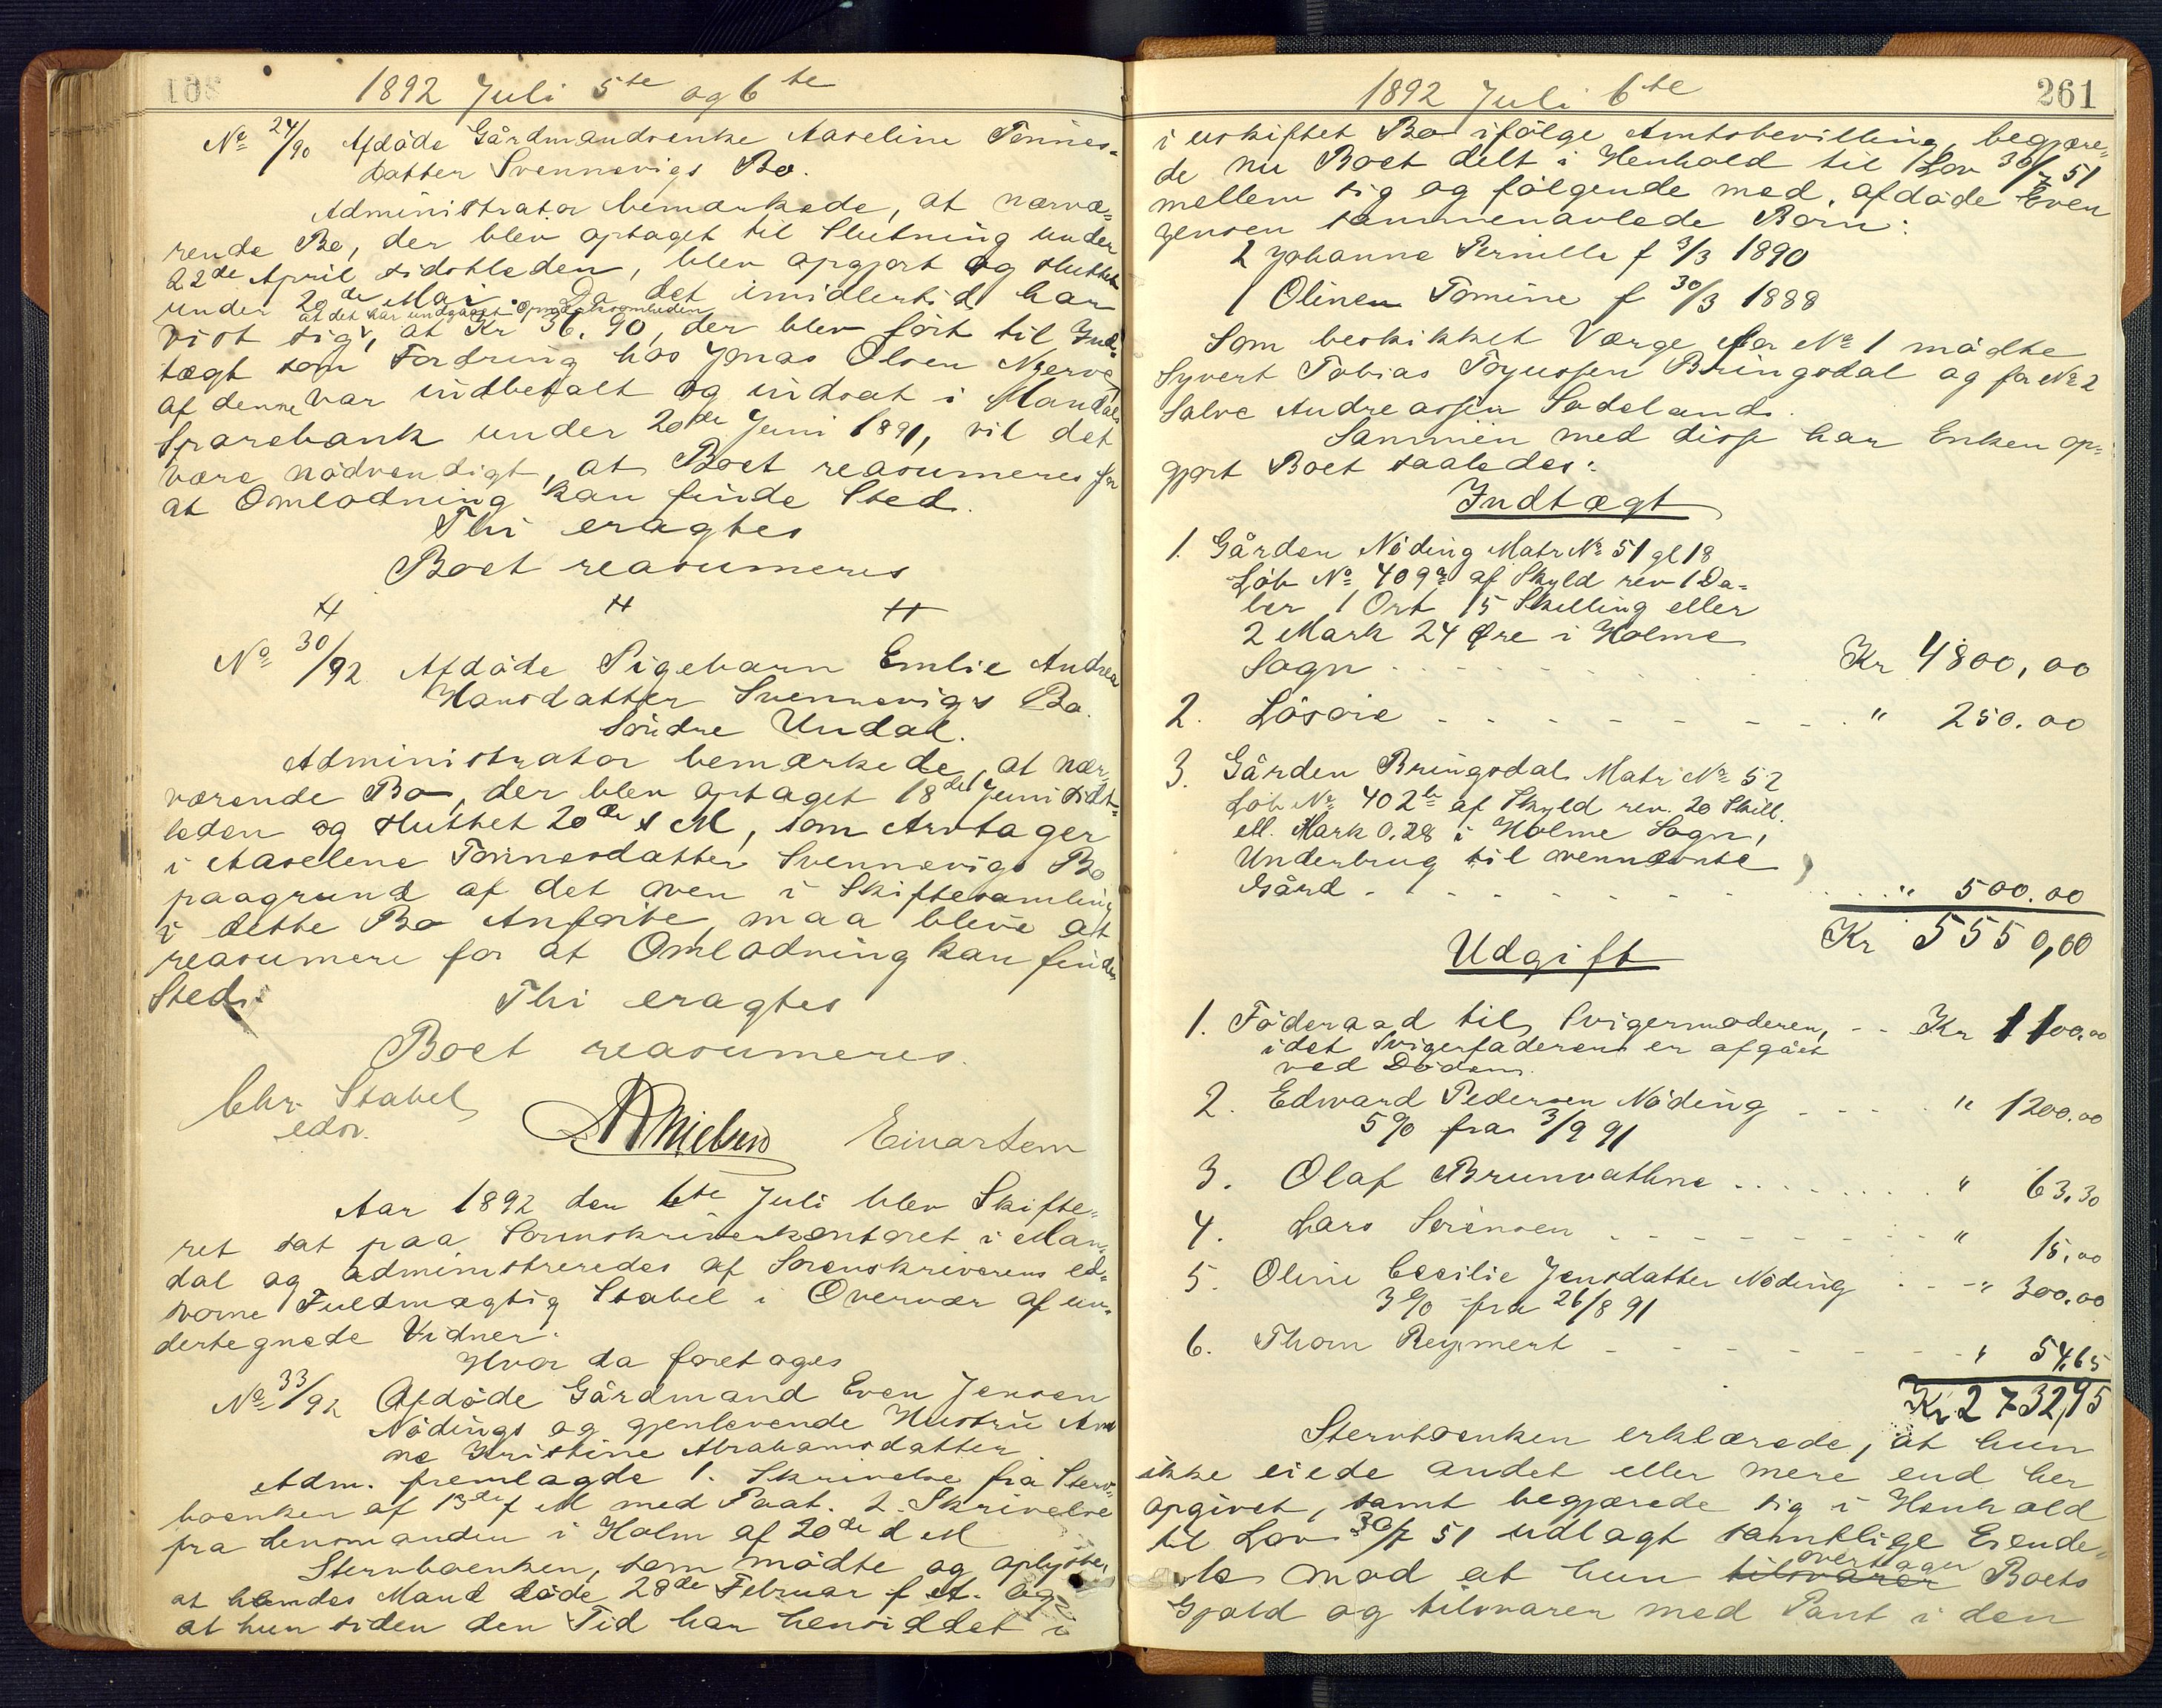 1892 Juli 5te og 6te
No 24/90 Afdöde Gårdmandsenke Aaseline Tønnes-
datter Svennevigs Bo.
Administrator bemærkede, at nærvæ-
rende Bo, der blev optaget til Slutning under
22de April sidstleden, blev opgjort og sluttet
under 20de Mai. Da det imidlertid har
at det har undgaaet Opmærksomheden
vist sig, at Kr 36.90, der blev fört til Ind-
tægt som Fordring hos Jonas Olsen
af denne var indbetalt og indsat i Mandals
Sparebank under 20de Juni 1891, vil det
være nödvendigt, at Boet reasumeres for
at Omlodning kan finde Sted.
Thi eragtes
Boet reasumeres
No 30/92 Afdöde Pigebarn Emlie Andrea
Hansdatter Svennevigs Bo.
Söndre Undal.
Administrator bemærkede, at nær-
værende Bo, der blev optaget 18de Juni sidst-
leden og sluttet 20de s M, som Arvtager
i Aaselene Tönnesdatter Svennevigs Bo
paagrund af det oven i Skiftesamling
i dette Bo Anförte, maa blive at
reasumere for at Omlodning kan finde
Sted.
Thi eragtes
Boet reasumeres.
Chr. Stabel
edsv.
Nielsen
Einartsen
Aar 1892 den 6te Juli blev Skifte-
ret sat paa Sorenskriverkontoret i Man-
dal og administreredes af Sorenskriverens ed-
svorne Fuldmægtig Stabel i Overvær af un-
dertegnede Vidner.
Hvor da foretages
No 33/92 Afdöde Gårdmand Even Jensen
Nödings og gjenlevende Hustru An-
ne Kristine Abrahamsdatter
Adm. fremlagde 1. Skrivelse fra Sterv-
boenken af 13de f M med Paat. 2. Skrivelse
fra Lensmanden i Holm af 20de d M
Stervboenken, som mödte og oplyste,
at hendes Mand döde 28de Februar f A. og
at hun siden den Tid har hensiddet i
1892 Juli 6te
261
i uskiftet Bo ifölge Amtsbevilling, begjære-
de nu Boet delt i Henhold til Lov 30/7 51
mellem sig og fölgende med afdöde Even
Jensen sammenavlede Börn:
2 Johanne Pernille f 3/3 1890
1 Olinen Tomine f 30/3 1888
Som beskikket Værge for No 1 mödte
Syvert Tobias Bringsdal og for No 2
Salve Andreassen Sodeland.
Sammen med disse har Enken op-
gjort Boet saaledes:
Indtægt
1. Gården Nöding Matr No 51 gl 18
Löb No 409a af Skyld rev 1 Da-
ler 1 Ort 15 Skilling eller
2 Mark 24 Øre i Holme
Sogn . . . . . Kr 4800,00
2. Lösöre - - - - - " 250.00
3. Gården Bringsdal Matr No 52
Löb No 402b af Skyld rev. 20 Skill.
ell. Mark 0.28 i Holme Sogn,
Underbrug til ovennævnte
Gård - - - - - " 500.00
Kr 5550,00
Udgift
1. Föderaad til Svigermoderen, - - Kr 1100.00
idet Svigerfaderen er afgået
ved Döden.
2. Edvard Pedersen Nöding - - - " 1200.00
5% fra 3/9 91
3. Olaf Brunvathne . . . . . " 63.30
4. Lars Sörensen - - - - - " 15.00
5. Oline Cecilie Jensdatter Nöding - - " 300.00
3% fra 26/8 91
6. Thom Reymert - - - - - " 54,65
Kr 2732,95
Stervboenken erklærede, at hun
ikke eiede andet eller mere end her
opgivet, samt begjærede sig i Henhold
til Lov 30/7 51 udlagt samtlige Eiende-
dele mod at hun tilsvarer overtager Boets
Gjæld og tilsvaren med Pant i den